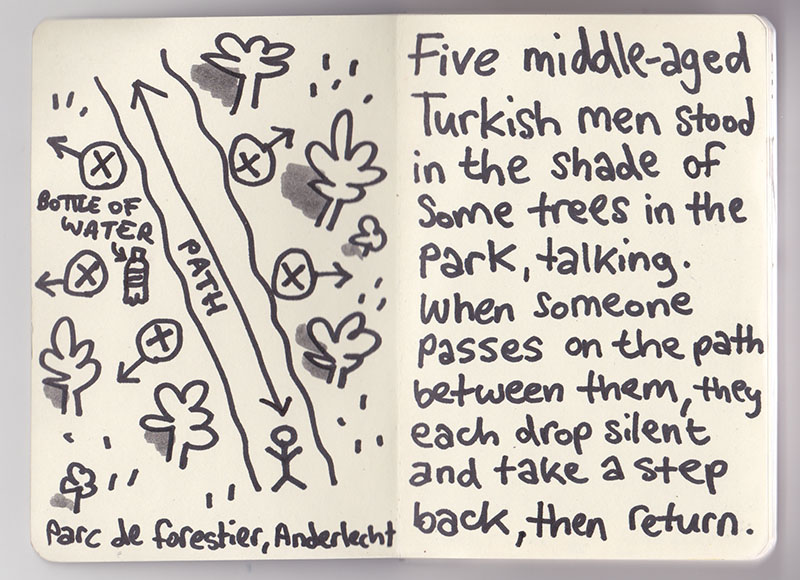 BOTTLE OF
WATER
PATH
X
X
X
X
X
Parc de forestier, Anderlecht
Five middle-aged
Turkish men stood
in the shade of
some trees in the
park, talking.
When someone
passes on the path
between them, they
each drop silent
and take a step
back, then return.